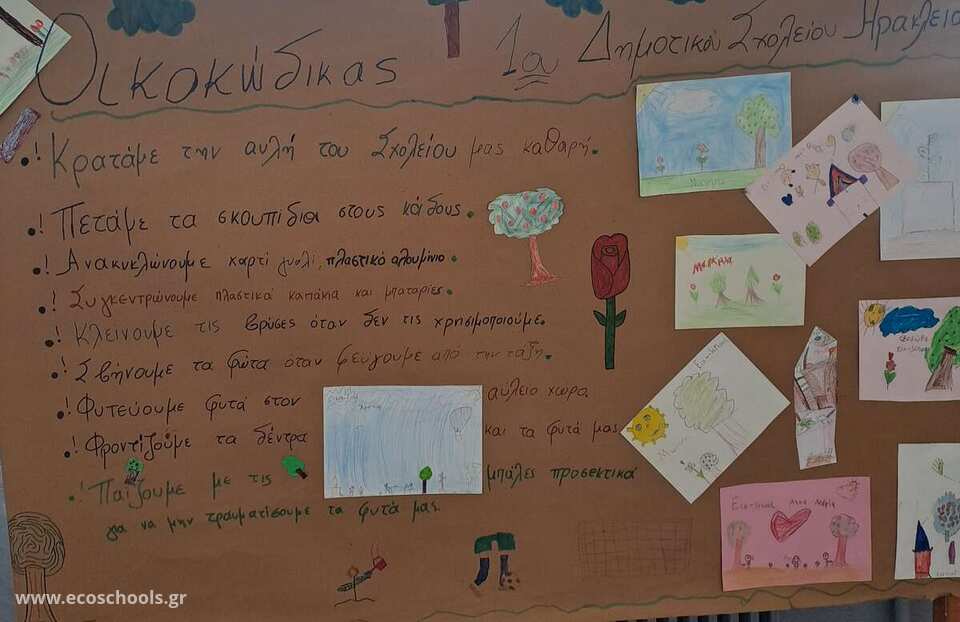 Οικοκώδικας 1ου Δημοτικού Σχολείου Ηρακλείο
! Κρατάμε την αυλή του Σχολείου μας καθαρή.
! Πετάμε τα σκουπίδια στους κάδους.
! Ανακυκλώνουμε χαρτί γυαλί, πλαστικό αλουμίνιο.
! Συγκεντρώνουμε πλαστικά καπάκια και μπαταρίες.
! Κλείνουμε τις βρύσες όταν δεν τις χρησιμοποιούμε.
! Σβήνουμε τα φώτα όταν φεύγουμε από την τάξη.
! Φυτεύουμε φυτά στον αύλειο χώρο
! Φροντίζουμε τα δέντρα και τα φυτά μας
! Παίζουμε με τις μπάλες προσεκτικά
για να μην τραυματίσουμε τα φυτά μας.
www.ecoschools.gr